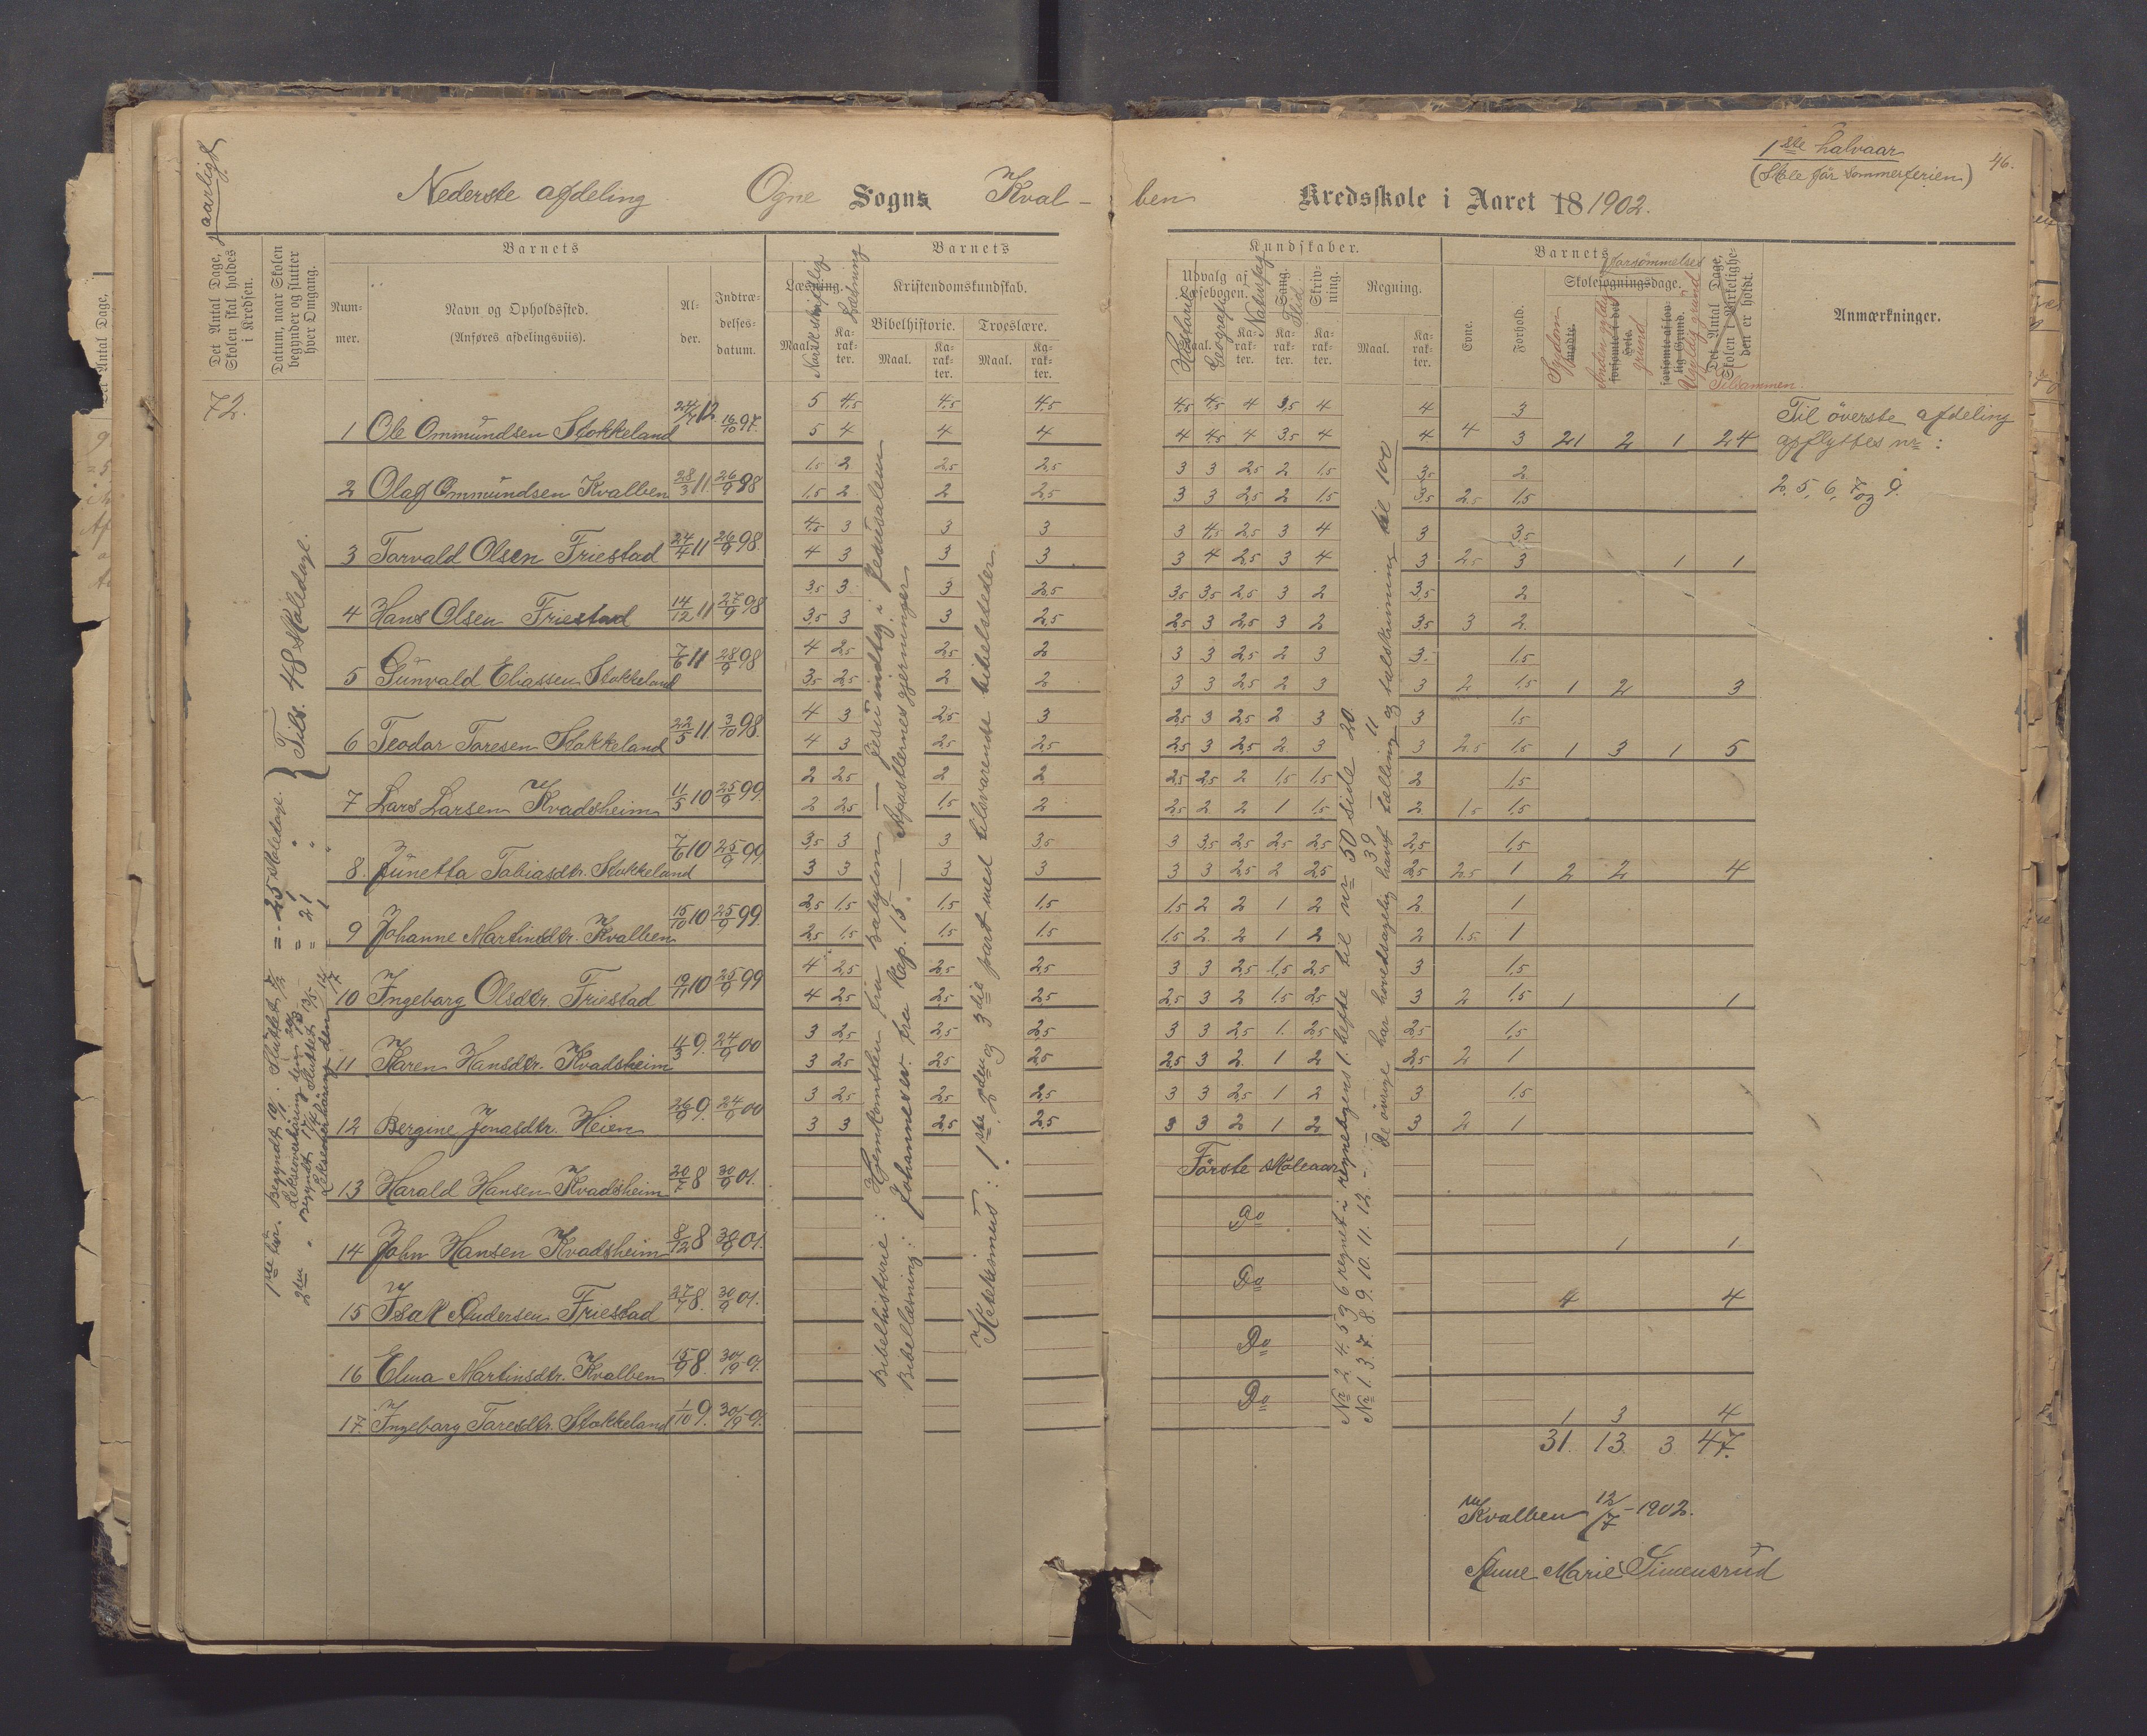 aarligt
Nederste afdeling Ogne Sogns Kval-
Det Antal Dage, Skolen skal holdes i Kredsen.
Datum, naar Skolen begynder og slutter hver Omgang.
Barnets
Num-mer.
Navn og Opholdssted.
(Anføres afdelingsviis).
Al-der.
Indtræ-delses-datum.
Barnets
Læsning.
Norsk skriftlig
Læsning
Maal.
Ka-rak-ter.
Kristendomskundskab.
Bibelhistorie.
Troeslære.
Maal. Ka-rak-ter. Maal. Ka-rak-ter.
72.
1 Ole Ommundsen Stokkeland 24/4 12 16/10 97. 5 4,5 4,5 4,5
5 4 4 4
2 Olaf Ommundsen Kvalben 28/3 11. 26/9 98 1,5 2 2,5 2,5
1,5 2 2 2,5
3 Torvald Olsen Friestad 24/4 11 26/9 98. 4,5 3 3 3
4 3 3 3
4 Hans Olsen Friestad 14/12 11 27/9 98 3,5 3 3 2,5
3,5 3 3 2,5
5 Gunvald Eliassen Stokkeland 7/6 11 28/9 98 4 2,5 2,5 2
3,5 2,5 2 2
6 Teodor Toresen Stokkeland 22/5 11 3/10 98. 4 3 2,5 3
4 3 2,5 2,5
7 Lars Larsen Kvadsheim 11/5 10 25/9 99. 2 2,5 2 2
2 2,5 1,5 2
8. Junetta Tobiasdtr. Stokkeland 7/6 10 25/9 99. 3,5 3 3 3,5
3 3 3 3
9 Johanne Martinsdtr. Kvalben 15/10 10 25/9 99. 2,5 1,5 1,5 1,5
2,5 1,5 1,5 1,5
10 Ingeborg Olsdtr. Friestad 19/11 10 25/9 99 4 2,5 2,5 2,5
4 2,5 2,5 2,5
11 Karen Hansdtr. Kvadsheim 4/3 9. 24/9 00 3 2,5 2,5 2,5
3 2,5 2,5 2,5
12 Bergine Jonasdtr. Heien 26/9 9. 24/9 00 3 2,5 2,5 2,5
3 3 2,5 2,5
13 Harald Hansen Kvadsheim 20/7 8 30/9 01.
14 John Hansen Kvadsheim 8/12 8 30/9 01.
15 Isak Andersen Friestad 27/7 8. 30/9 01.
16 Elina Martinsdtr. Kvalben 15/9 8. 30/9 -01.
17. Ingeborg Toresdtr. Stokkeland 1/10 9. 30/9 -01.
1ste tur. Begyndt 19/1. Sluttet 7/2 = 25 skoledage.
Lekseoverhøring den
2den " Begyndt Sluttet 13/5 = 21 "
Lekseoverhøring den 12/7 1 "
Tils. 48 skoledage.
Bibelhistorie: Hjemkomsten fra Babylon — Jesu indtog i Jerusalem
Bibellæsning: Johannesev. fra Kap. 15. — Apostlernes gjerninger.
Katekismus: 1ste 2den og 3die part med tilsvarende bibelsteder.
1ste halvaar
(Skole før sommerferien)
46.
ben Kredsskole i Aaret 18 1902.
Kundskaber.
Udvalg af Læsebogen.
Historie
Geografi
Naturfag
Sang.
Flid
Skriv-ning.
Regning.
Maal. Ka-rak-ter.
Barnets
Evne.
Forhold.
Forsømmelses
Skolesøgningsdage.
Sygdom
mødte.
Anden gyldig grund
forsømte i det Hele.
Ugyldig grund
forsømte af lov-lig Grund.
Det Antal Dage, Skolen i Virkelighe-den er holdt.
Tilsammen.
Anmærkninger.
4,5 4,5 4 3,5 4 4 3
4 4,5 4 3,5 4 4 4 3 21 2 1 24
3 3 2,5 2 1,5 3,5 2
3 3 2,5 2 1,5 3,5 2,5 1,5
3 4,5 2,5 3 4 3 3,5
3 4 2,5 3 4 3 2,5 3 1 1
3,5 3,5 2,5 3 2 3,5 2
2,5 3 2,5 3 2 3,5 3 2
3 3 2,5 2 3 3 1,5
3 3 2,5 2 3 3 2 1,5 1 2 3
2,5 3 2,5 2 3 3 1,5
2,5 3 2,5 2 3 3 2,5 1,5 1 3 1 5
2,5 2,5 2 1,5 1,5 2 1,5
2,5 2 2 1 1,5 2 1,5 1,5
3 3,5 2,5 2,5 2,5 2,5 1,5
3 3 2,5 2 2,5 2,5 2,5 1 2 2 4
1,5 2 2 1 2 2 1
1,5 2 2 1 2 2 1,5 1
3 3 2,5 1,5 2,5 3 1,5
2,5 3 2 1,5 2,5 3 2 1,5 1 1
3 3 2,5 1 2,5 2,5 1,5
2,5 3 2 1 2 2,5 2 1
3 3 2,5 1 2 3 1,5
3 3 2 1 2 3 2 1
Første skoleaar
Do 1 1
Do 4 4
Do
Do 1 3 4
31. 13. 3 47.
Nr 2 4 5 og 6 regnet i regnebogens 1. hefte til nr 50 side 20.
Nr 1. 3. 7. 8. 9. 10. 11. 12. — " — 39 " 11
De øvrige har hovedsagelig havt tælling og talskrivning til 100
Til øverste afdeling
opflyttes nr:
2, 5, 6, 7 og 9.
Kvalben 12/7 - 1902.
Anne Marie Simensrud